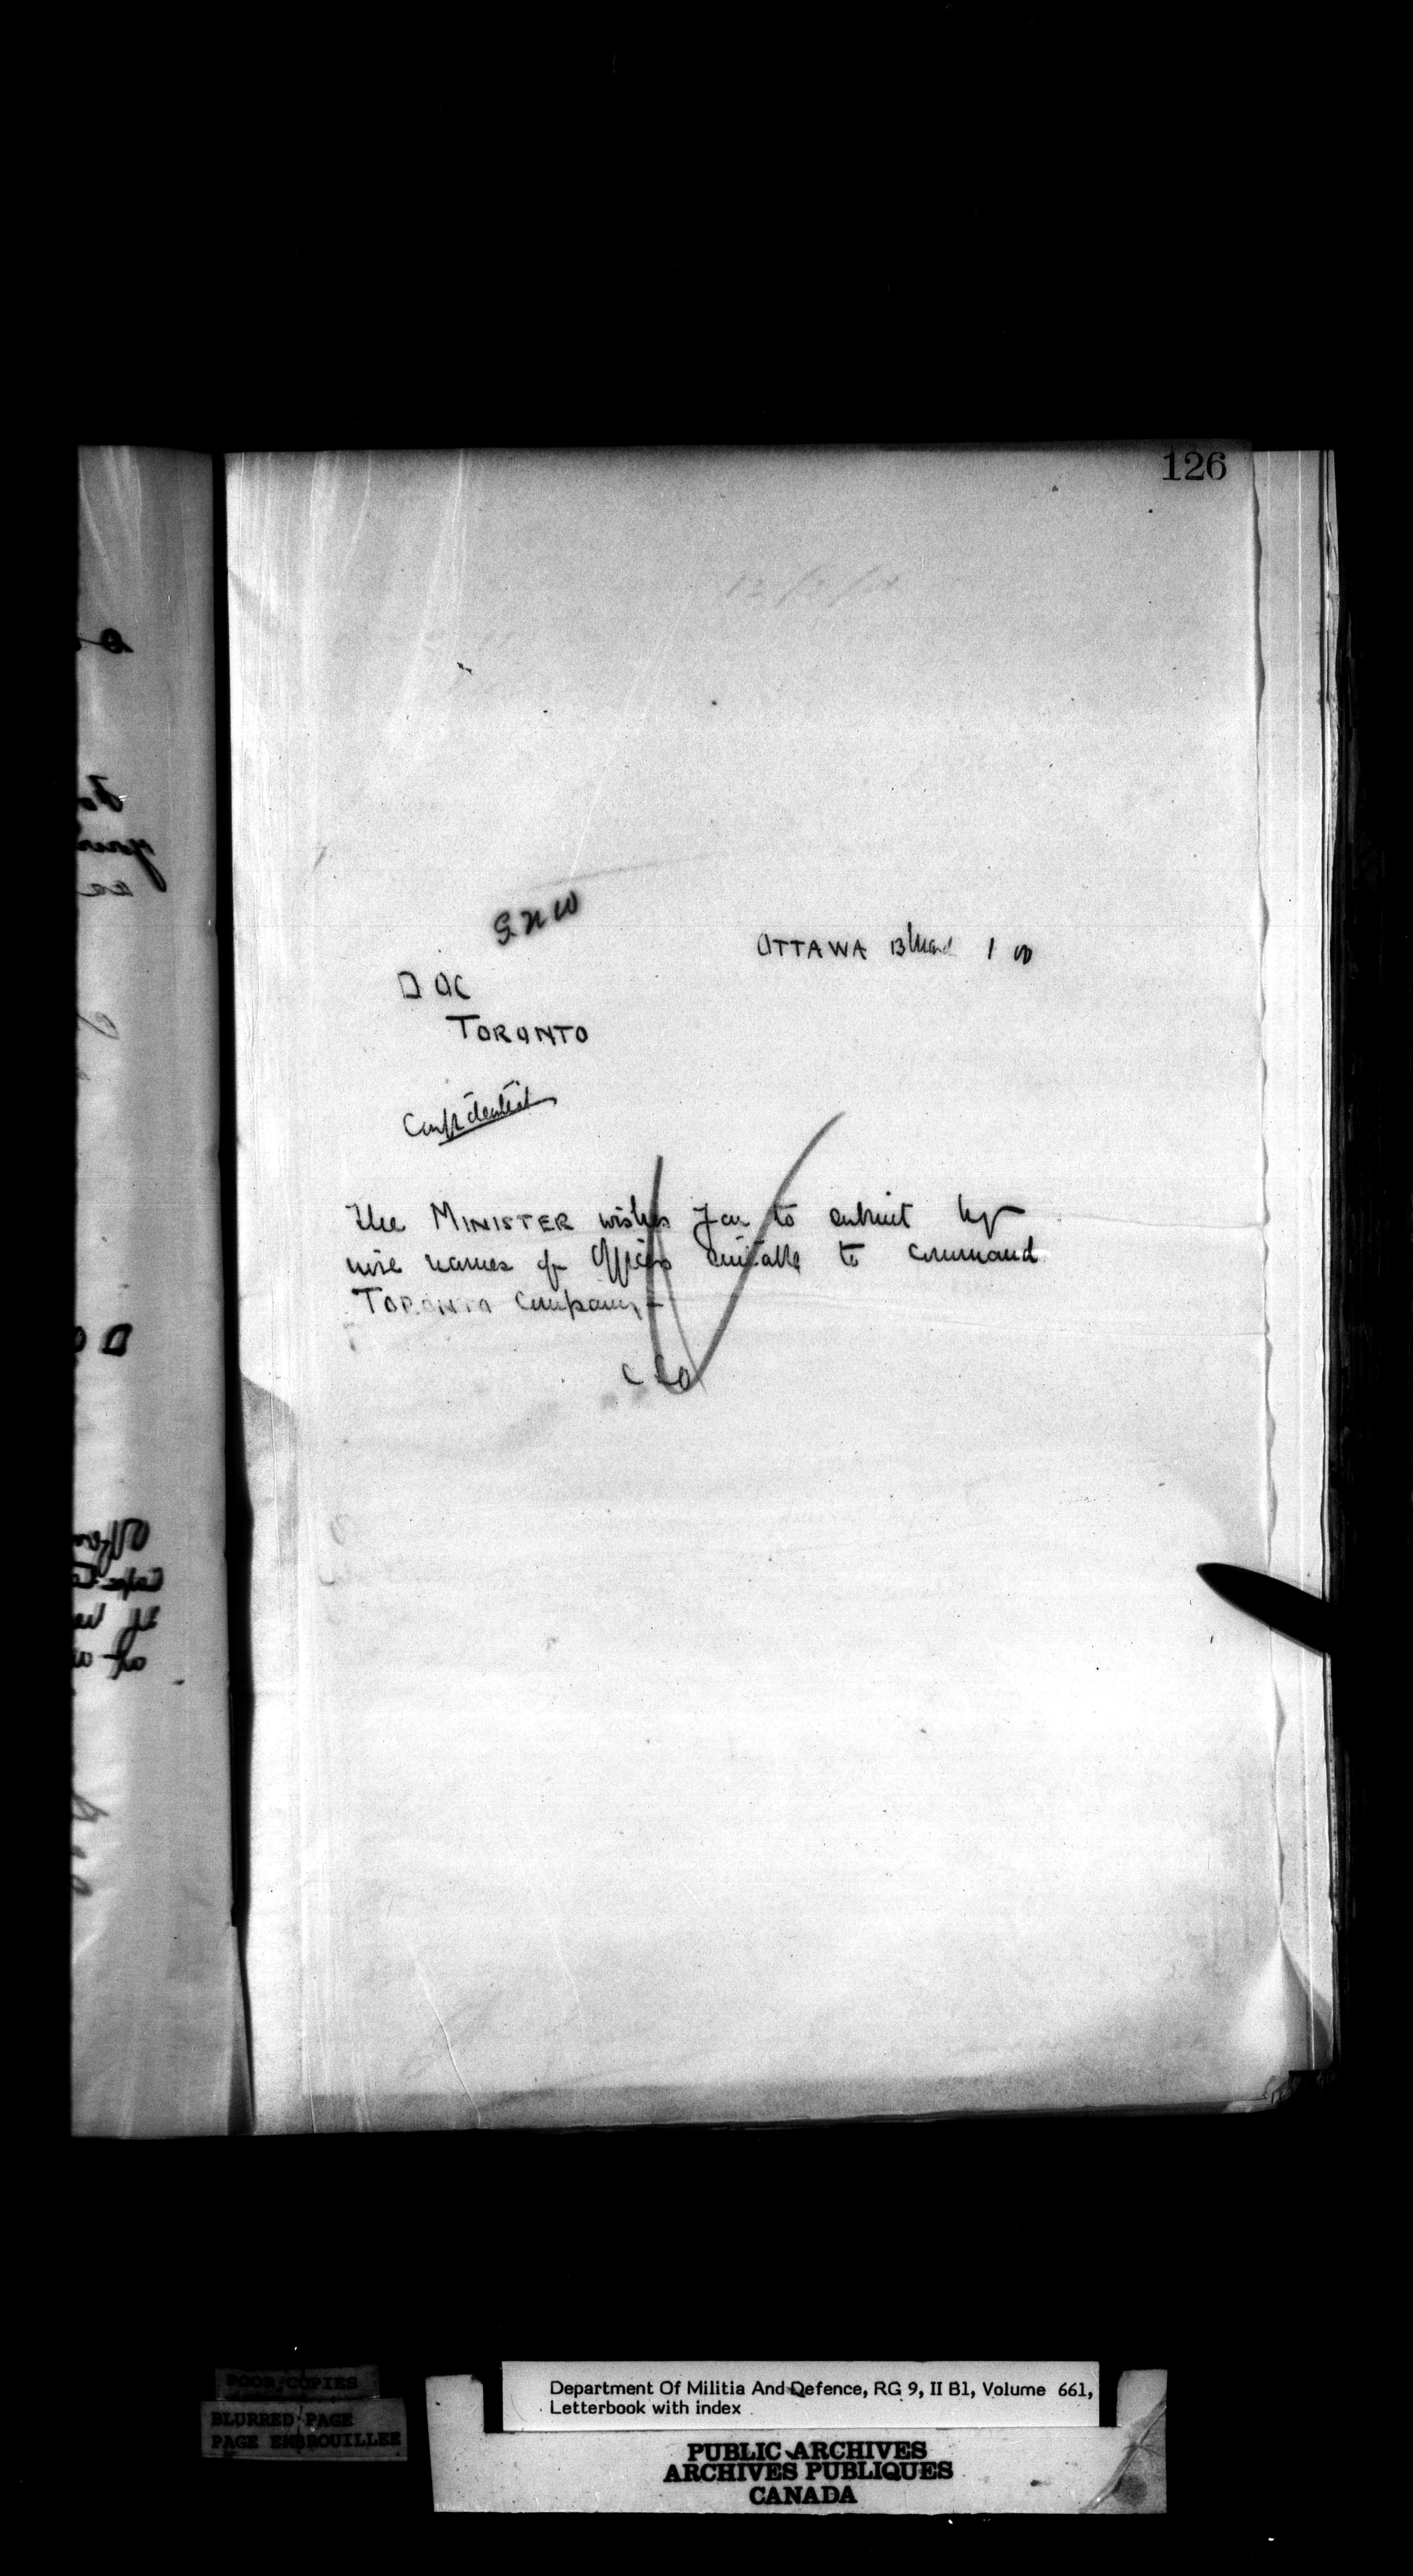 126
G.N.W
OTTAWA 13 March 1 00
D OC
TORONTO
Confidential
The MINISTER wishes you to submit by
wire names of Officers suitable to command
TORONTO Company -
C S O
POOR COPIES
BLURRED PAGE
PAGE EMBROUILLEE
Department Of Militia And Defence, RG 9, II B1, Volume 661,
Letterbook with index
PUBLIC ARCHIVES
ARCHIVES PUBLIQUES
CANADA